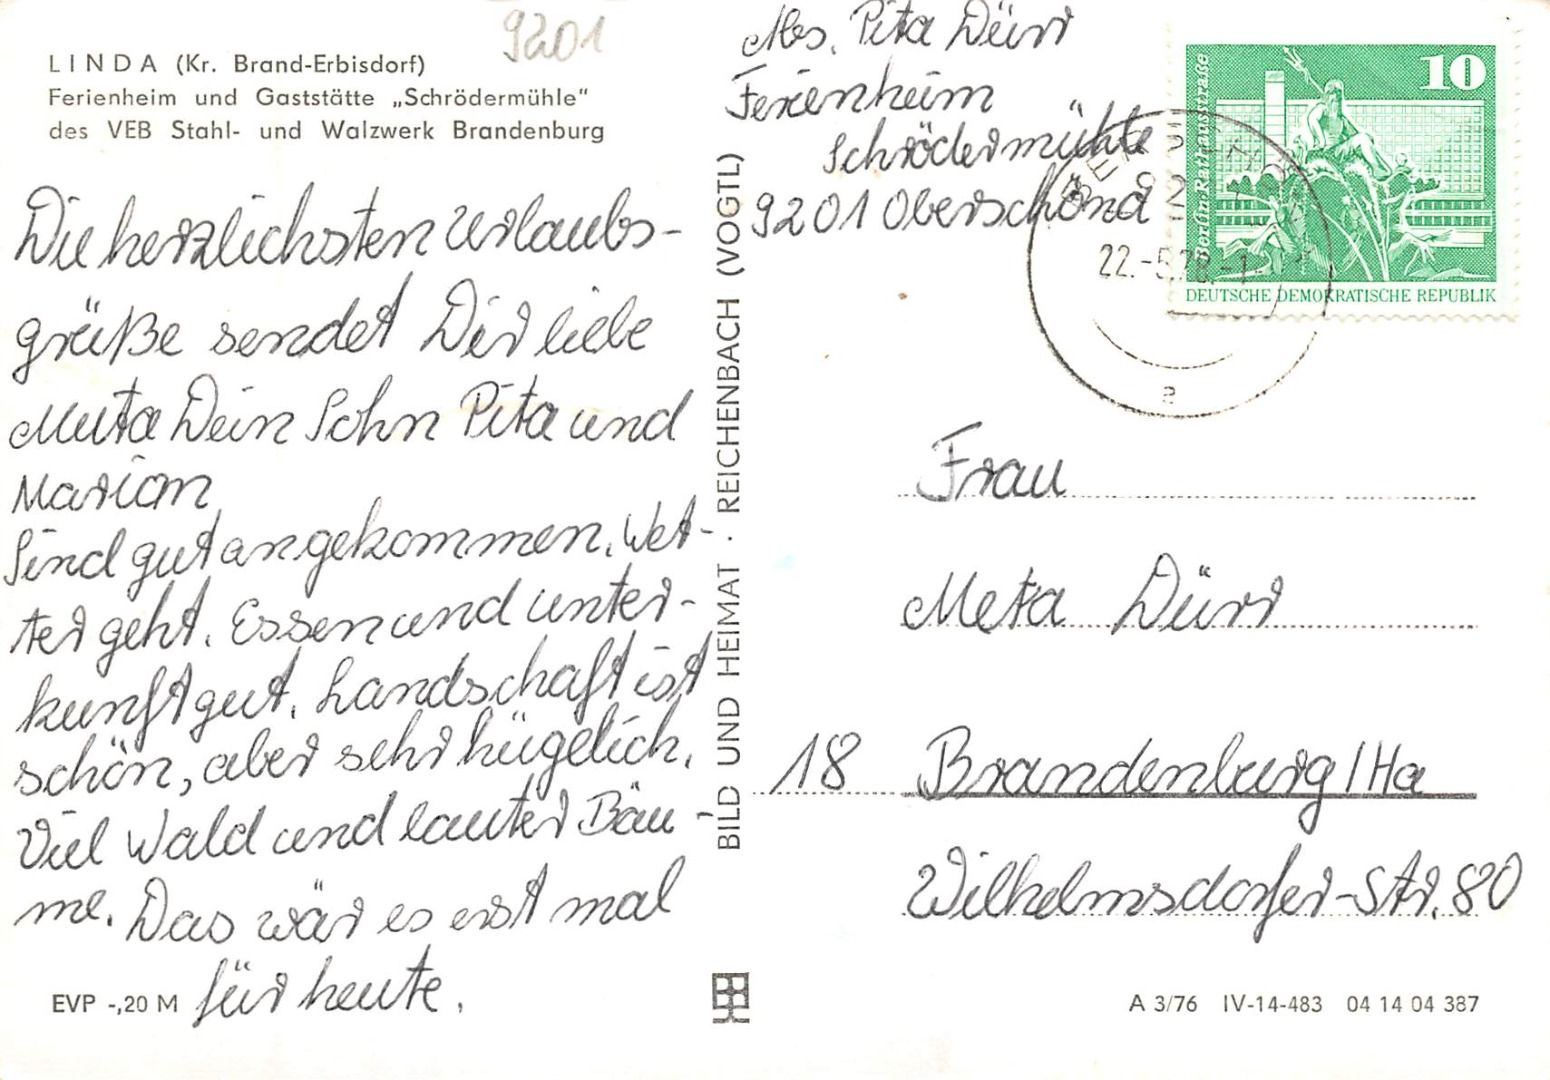 9201
LINDA (Kr. Brand-Erbisdorf)
Ferienheim und Gaststätte „Schrödermühle"
des VEB Stahl- und Walzwerk Brandenburg
Die herzlichsten Urlaubs-
grüße sendet Dir liebe
Mutta Dein Sohn Pita und
Marion
Sind gut angekommen. Wet-
ter geht. Essen und unter-
kunft gut. Landschaft ist
schön, aber sehr hügelich.
Viel Wald und lauter Bäu-
me. Das wär es erst mal
für heute.
EVP -,20 M
BILD UND HEIMAT · REICHENBACH (VOGTL)
Abs. Pita Dürr
Ferienheim
Schrödermühle
9201 Oberschöna
10
Berlin, Rathausstraße
DEUTSCHE DEMOKRATISCHE REPUBLIK
22.-5.78.-1
Frau
Meta Dürr
18 Brandenburg/Ha
Wilhelmsdorfer-Str. 80
A 3/76 IV-14-483 04 14 04 387